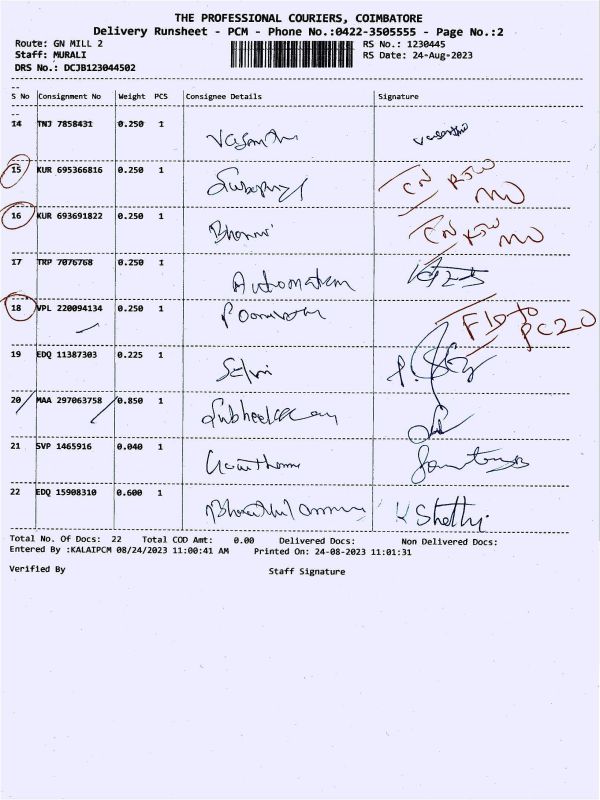 THE PROFESSIONAL COURIERS, COIMBATORE
Delivery Runsheet - PCM - Phone No.:0422-3505555 - Page No.:2
Route: GN MILL 2 RS No.: 1230445
Staff: MURALI RS Date: 24-Aug-2023
DRS No.: DCJB123044502
S No Consignment No Weight PCS Consignee Details Signature
14 TNJ 7858431 0.250 1 Vasanthi
15 KUR 695366816 0.250 1
16 KUR 693691822 0.250 1
17 TRP 7076768 0.250 1 Automation
18 VPL 220094134 0.250 1
19 EDQ 11387303 0.225 1 Selvi
20 MAA 297063758 0.850 1
21 SVP 1465916 0.040 1
22 EDQ 15908310 0.600 1 K Shetty
Total No. Of Docs: 22 Total COD Amt: 0.00 Delivered Docs: Non Delivered Docs:
Entered By :KALAIPCM 08/24/2023 11:00:41 AM Printed On: 24-08-2023 11:01:31
Verified By Staff Signature